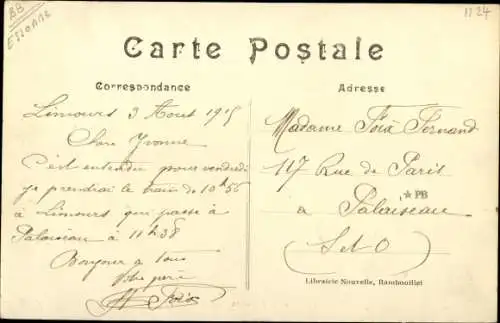 BB
ESSONNE
1124
Carte Postale
Correspondance
Adresse
Limours 3 Aout 1915
Yvonne
C'est entendu pour vendredi
je prendrai le train de 10h56
à Limours qui passe à
Palaiseau à 11h38
Bonjour à tous
Votre père
Foix
Madame Foix Fernand
117 Rue de Paris
*PB
a Palaiseau
(S et O)
Librairie Nouvelle, Rambouillet